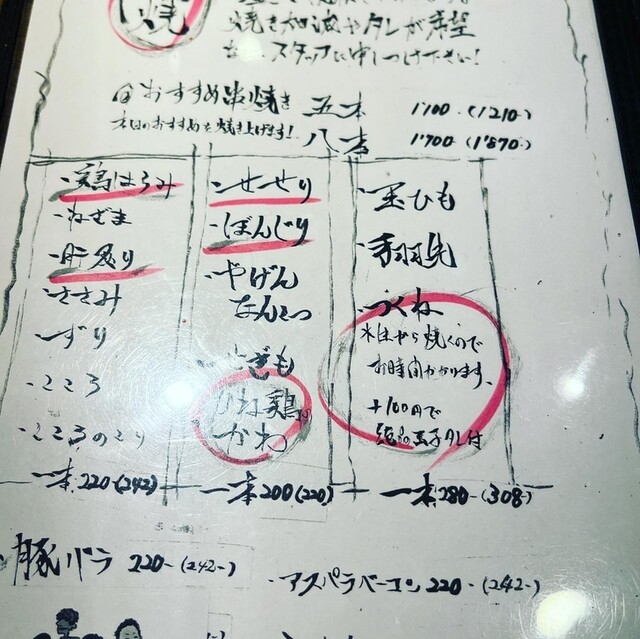 焼
焼き加減やタレが希望
スタッフに申しつけ下さい!
おすすめ串焼き 五本 1100-(1210)
本日のおすすめを焼き上げます! 八本 1700-(1870)
・鶏はらみ
・ねぎま
・肝炙り
・ささみ
・ずり
・こころ
・こころのこり
一本 220-(242)
・せせり
・ぼんじり
・やげん
なんこつ
・せぎも
ひね鶏の
かわ
一本 200(220)
・玉ひも
・手羽先
・つくね
から焼くので
お時間かかります。
+100円で
玉子 付
一本 280-(308-)
・豚バラ 220-(242-)
・アスパラベーコン 220-(242-)